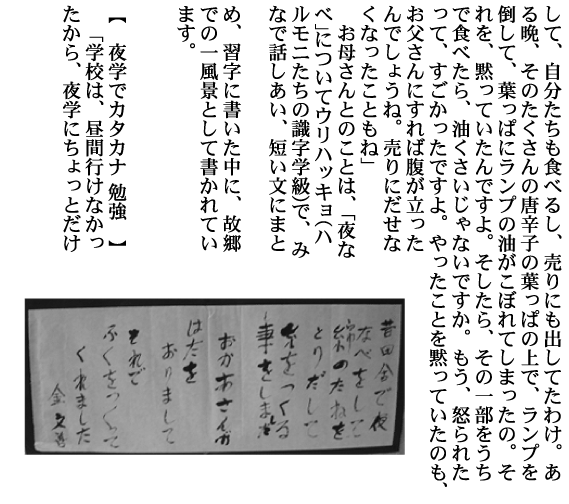 して、自分たちも食べるし、売りにも出してたわけ。あ
る晩、そのたくさんの唐辛子の葉っぱの上で、ランプを
倒して、葉っぱにランプの油がこぼれてしまったの。そ
れを、黙っていたんですよ。そしたら、その一部をうち
で食べたら、油くさいじゃないですか。もう、怒られた
って、すごかったですよ。やったことを黙っていたのも、
お父さんにすれば腹が立った
んでしょうね。売りにだせな
くなったこともね」
お母さんとのことは、「夜な
べ」についてウリハッキョ(ハ
ルモニたちの識字学級)で、み
なで話しあい、短い文にまと
め、習字に書いた中に、故郷
での一風景として書かれてい
ます。
【 夜学でカタカナ 勉強 】
「学校は、昼間行けなかっ
たから、夜学にちょっとだけ
昔田舎で夜
なべをして
綿のたねを
とりだして
糸をつくる
事をしました
おかあさんが
はたを
おりまして
それで
ふくをつくって
くれました
金文